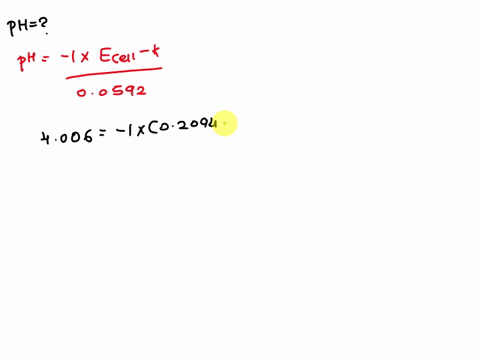 pH=?
pH = -1 x Ecell - k
0.0592
4.006 = -1 x (0.2094